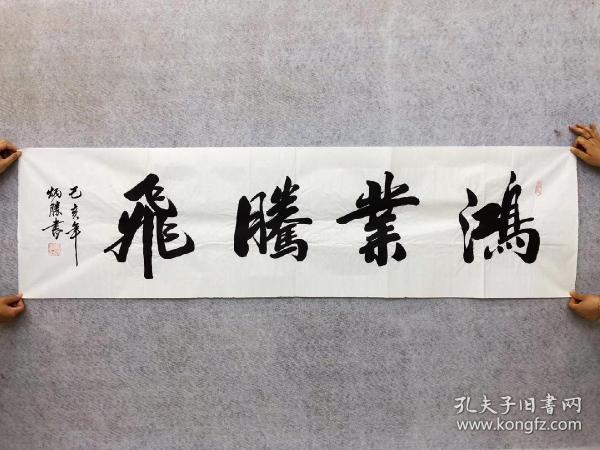 鴻業騰飛
己亥年
炳勝書
孔夫子旧書网
www.kongfz.com